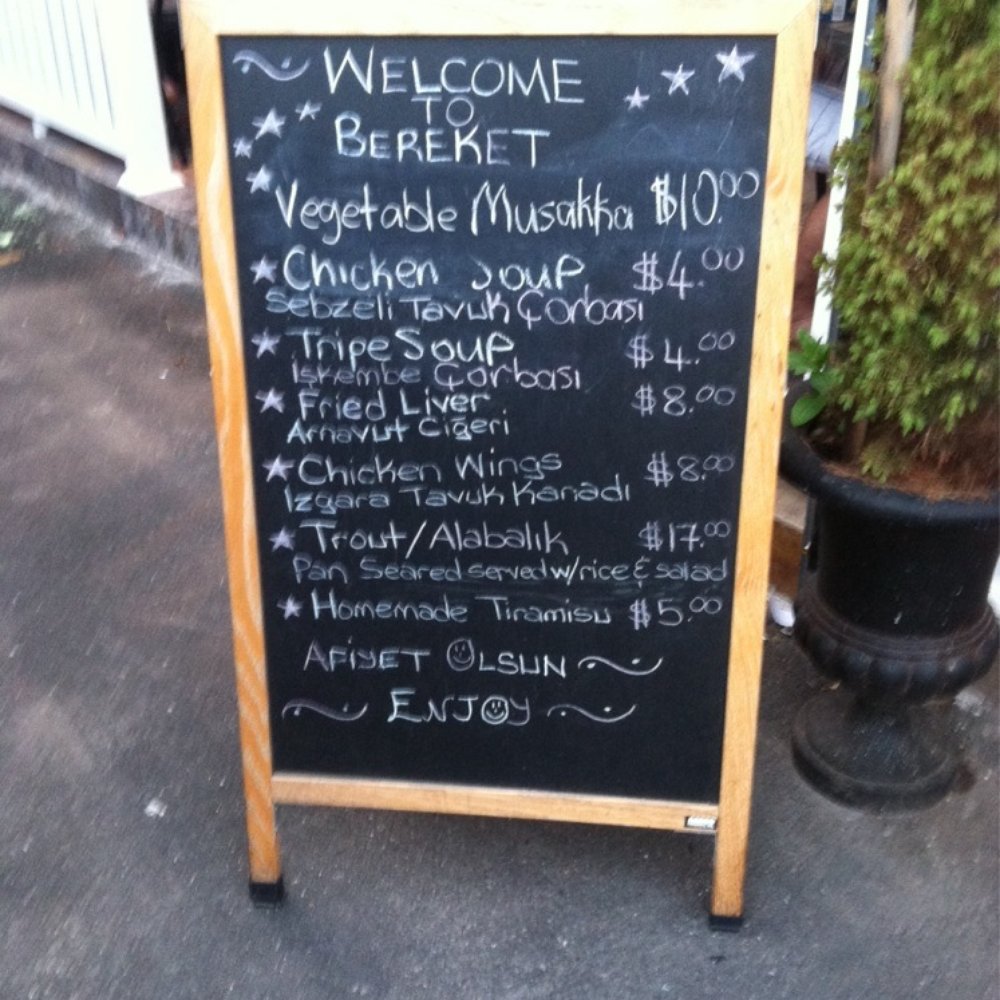 WELCOME
TO
BEREKET
Vegetable Musakka $10.00
Chicken Soup $4.00
Sebzeli Tavuk Çorbası
Tripe Soup $4.00
İşkembe Çorbası
Fried Liver $8.00
Arnavut Ciğeri
Chicken Wings $8.00
Izgara Tavuk Kanadı
Trout/Alabalık $17.00
Pan Seared served w/rice & salad
Homemade Tiramisu $5.00
AFİYET OLSUN
ENJOY